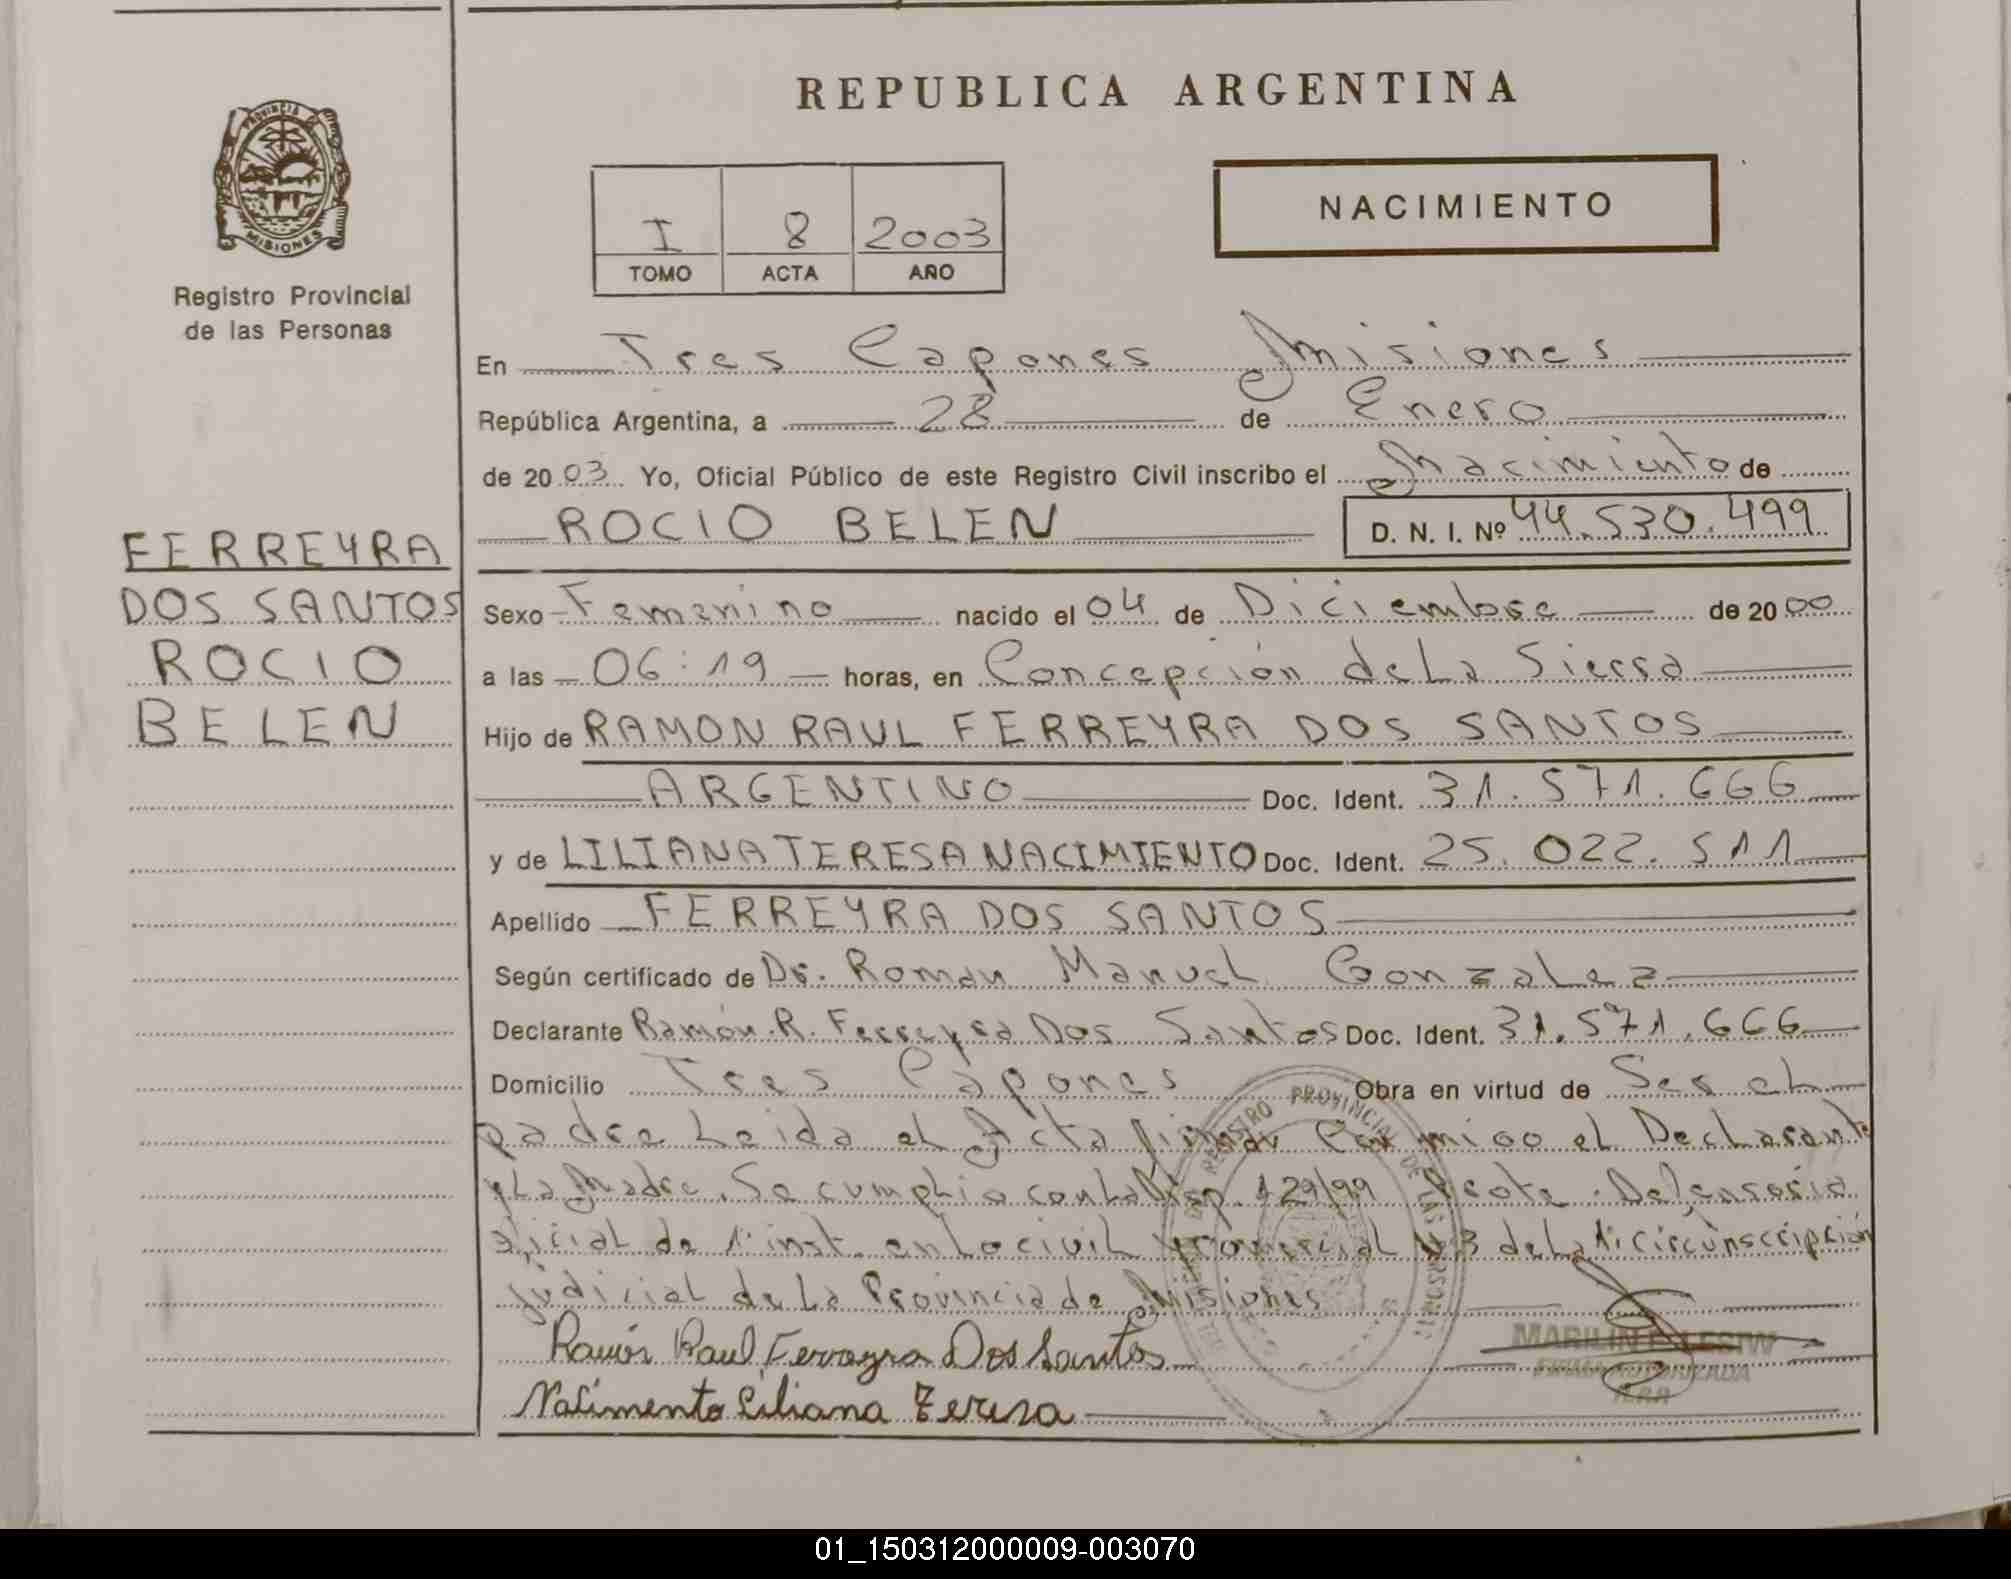 REPUBLICA ARGENTINA
PROVINCIA DE
MISIONES
Registro Provincial
de las Personas
I 8 2003
TOMO ACTA AÑO
NACIMIENTO
FERREYRA
DOS SANTOS
ROCIO
BELEN
En Tres Capones Misiones
República Argentina, a 28 de Enero
de 2003 Yo, Oficial Público de este Registro Civil inscribo el Nacimiento de
ROCIO BELEN D. N. I. Nº 44.530.499
Sexo Femenino nacido el 04 de Diciembre de 2000
a las 06:19 horas, en Concepción de La Sierra
Hijo de RAMON RAUL FERREYRA DOS SANTOS
ARGENTINO Doc. Ident. 31.571.666
y de LILIANA TERESA NACIMIENTO Doc. Ident. 25.022.511
Apellido FERREYRA DOS SANTOS
Según certificado de Dr. Roman Manuel Gonzalez
Declarante Ramón R. Ferreyra Dos Santos Doc. Ident. 31.571.666
Domicilio Tres Capones Obra en virtud de Ser el
padre Leida el Acta firman el Declarante
y La Madre. Se cumplio con La Disp. 129/99 Defensoria
oficial de 1º inst. en Lo civil y comercial Nº3 de La 1º Circunscripción
judicial de La Provincia de Misiones
Ramón Raul Ferreyra Dos Santos
Nacimento Liliana Teresa
REGISTRO PROVINCIAL DE LAS PERSONAS
FIRMA AUTORIZADA
01_150312000009-003070